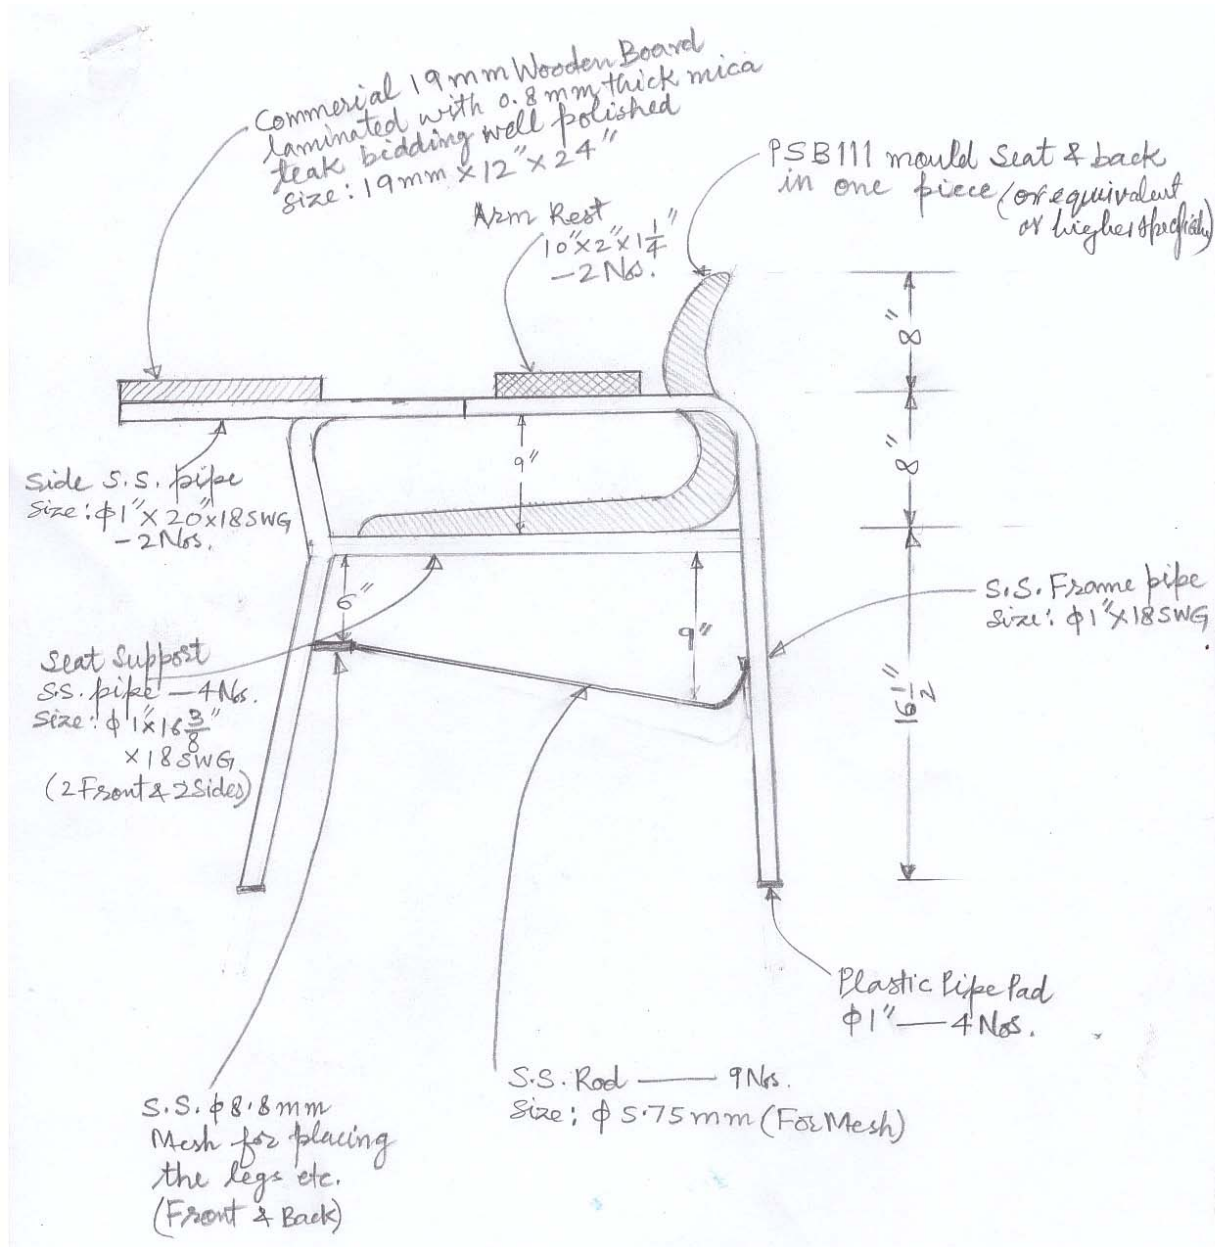 Commerial 19mm Wooden Board
laminated with 0.8mm thick mica
teak bidding well polished
Size: 19mm × 12" × 24"
PSB111 mould Seat & back
in one piece (or equivalent
or higher
Arm Rest
10"×2"×1 1/4"
—2 Nos.
8"
8"
9"
Side S.S. pipe
Size: φ1"× 20"×18SWG
– 2Nos.
S.S. Frame pipe
Size: φ1"×18SWG
6"
9"
16 1/2"
Seat Support
S.S. pipe — 4 Nos.
Size: φ1"×16 3/8"
×18SWG
(2 Front & 2 Sides)
Plastic Pipe Pad
φ1" — 4 Nos.
S.S. Rod — 9 Nos.
Size: φ 5.75mm (For Mesh)
S.S. φ8.8mm
Mesh for placing
the legs etc.
(Front & Back)